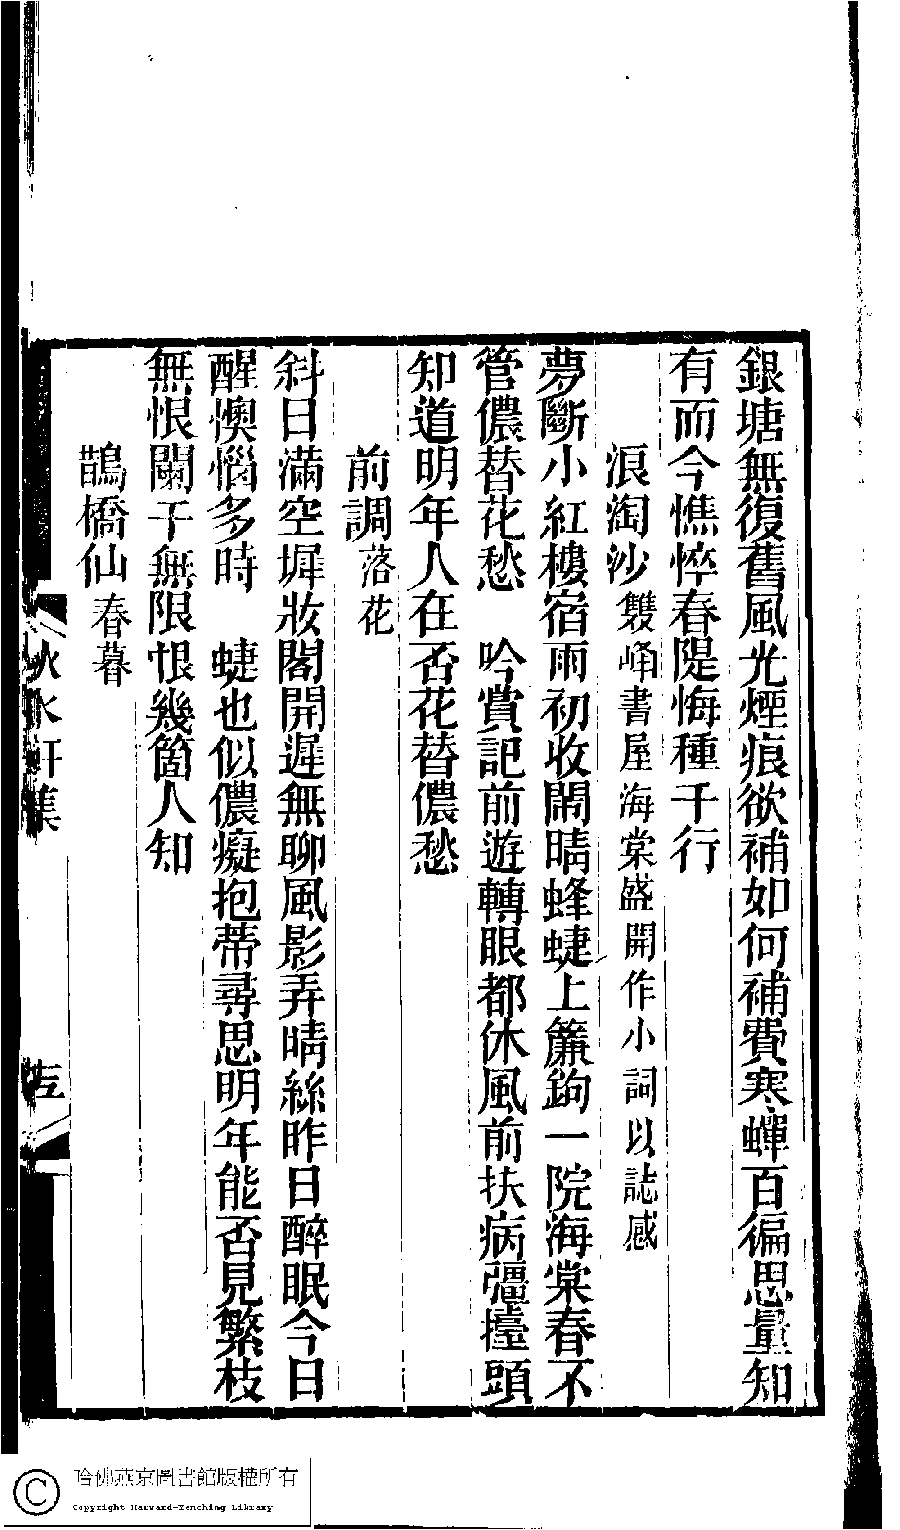 銀塘無復舊風光煙痕欲補如何補費寒蟬百徧思量知
有而今憔悴春隄悔種千行
浪淘沙雙峰書屋海棠盛開作小詞以誌感
夢斷小紅樓宿雨初收鬧晴蜂蜨上簾鉤一院海棠春不
管儂替花愁　吟賞記前遊轉眼都休風前扶病彊擡頭
知道明年人在否花替儂愁
前調落花
斜日滿空墀妝閣開遲無聊風影弄晴絲昨日醉眠今日
醒懊惱多時　蜨也似儂癡抱蒂尋思明年能否見繁枝
無恨闌干無限恨幾箇人知
鵲橋仙春暮
秋水軒集
哈佛燕京圖書館版權所有
Copyright Harvard-Yenching Library